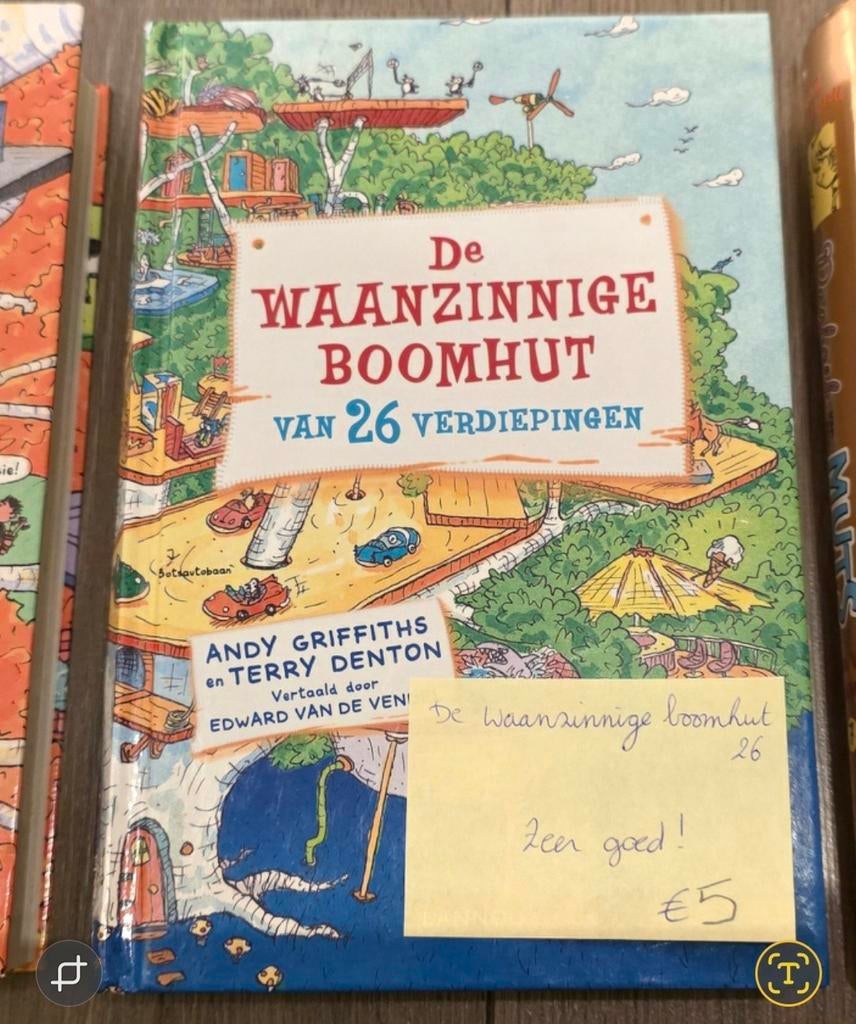 De
WAANZINNIGE
BOOMHUT
VAN 26 VERDIEPINGEN
Botsautobaan
ANDY GRIFFITHS
en TERRY DENTON
Vertaald door
EDWARD VAN DE
De waanzinnige boomhut
26
Zeer goed!
€5